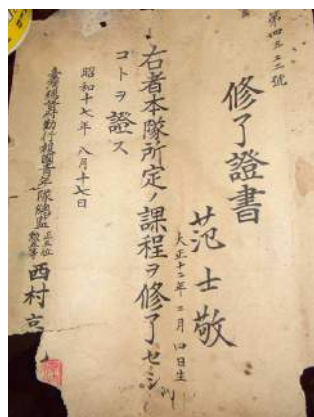 第四五三二號
修了證書
范士敬
大正十二年三月 日生
右者本隊所定ノ課程ヲ修了セシ
コトヲ證ス
昭和十七年八月十七日
臺灣總督府勤行報國青年隊總監
正五位
勲五等
西村